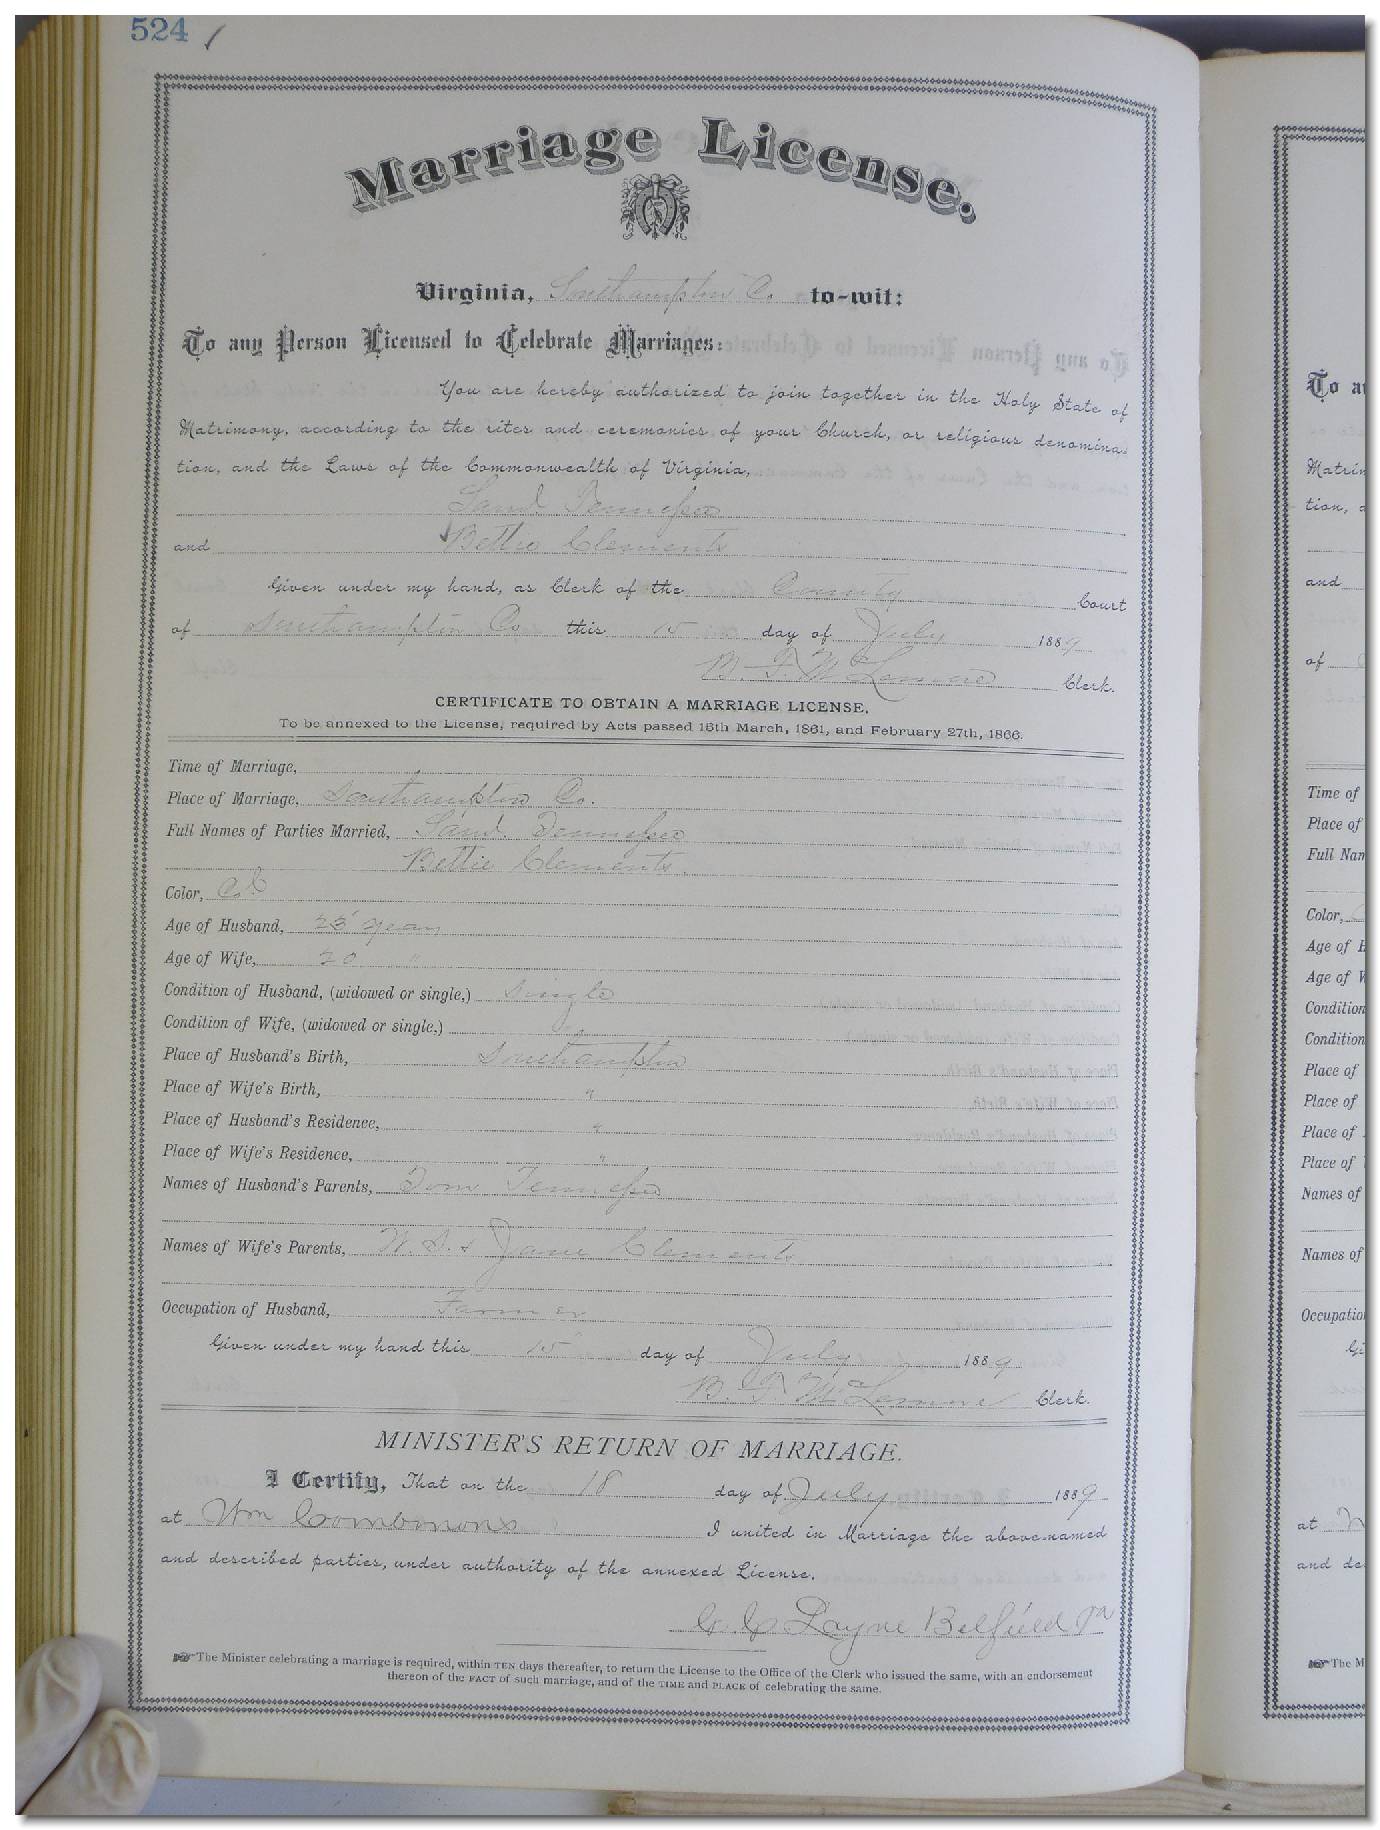 524
Marriage License.
Virginia, Southampton Co. to-wit:
To any Person Licensed to Celebrate Marriages:
You are hereby authorized to join together in the Holy State of
Matrimony, according to the rites and ceremonies of your Church, or religious denomina-
tion, and the Laws of the Commonwealth of Virginia,
Tennessee
and Bettie Clements
Given under my hand, as Clerk of the County Court
of Southampton Co. this 15 day of July 1889
B. F. McLemore Clerk.
CERTIFICATE TO OBTAIN A MARRIAGE LICENSE,
To be annexed to the License, required by Acts passed 16th March, 1861, and February 27th, 1866.
Time of Marriage,
Place of Marriage, Southampton Co.
Full Names of Parties Married, Tennessee
Bettie Clements.
Color, Col
Age of Husband, 23 years
Age of Wife, 20 "
Condition of Husband, (widowed or single,) Single
Condition of Wife, (widowed or single,) "
Place of Husband's Birth, Southampton
Place of Wife's Birth, "
Place of Husband's Residence, "
Place of Wife's Residence, "
Names of Husband's Parents, Tom Tennessee
Names of Wife's Parents, & Jane Clements
Occupation of Husband, Farmer
Given under my hand this 15 day of July 1889
B. F. McLemore Clerk.
MINISTER'S RETURN OF MARRIAGE.
I Certify, That on the 18 day of July 1889
at Wm I united in Marriage the above-named
and described parties, under authority of the annexed License.
Payne Belfield Va
The Minister celebrating a marriage is required, within TEN days thereafter, to return the License to the Office of the Clerk who issued the same, with an endorsement
thereon of the FACT of such marriage, and of the TIME and PLACE of celebrating the same.
To a
Matrin
tion,
and
of
Time of
Place of
Full Nan
Color,
Age of H
Age of W
Condition
Condition
Place of
Place of
Place of
Place of
Names of
Names of
Occupatio
Gi
at
and de
The M